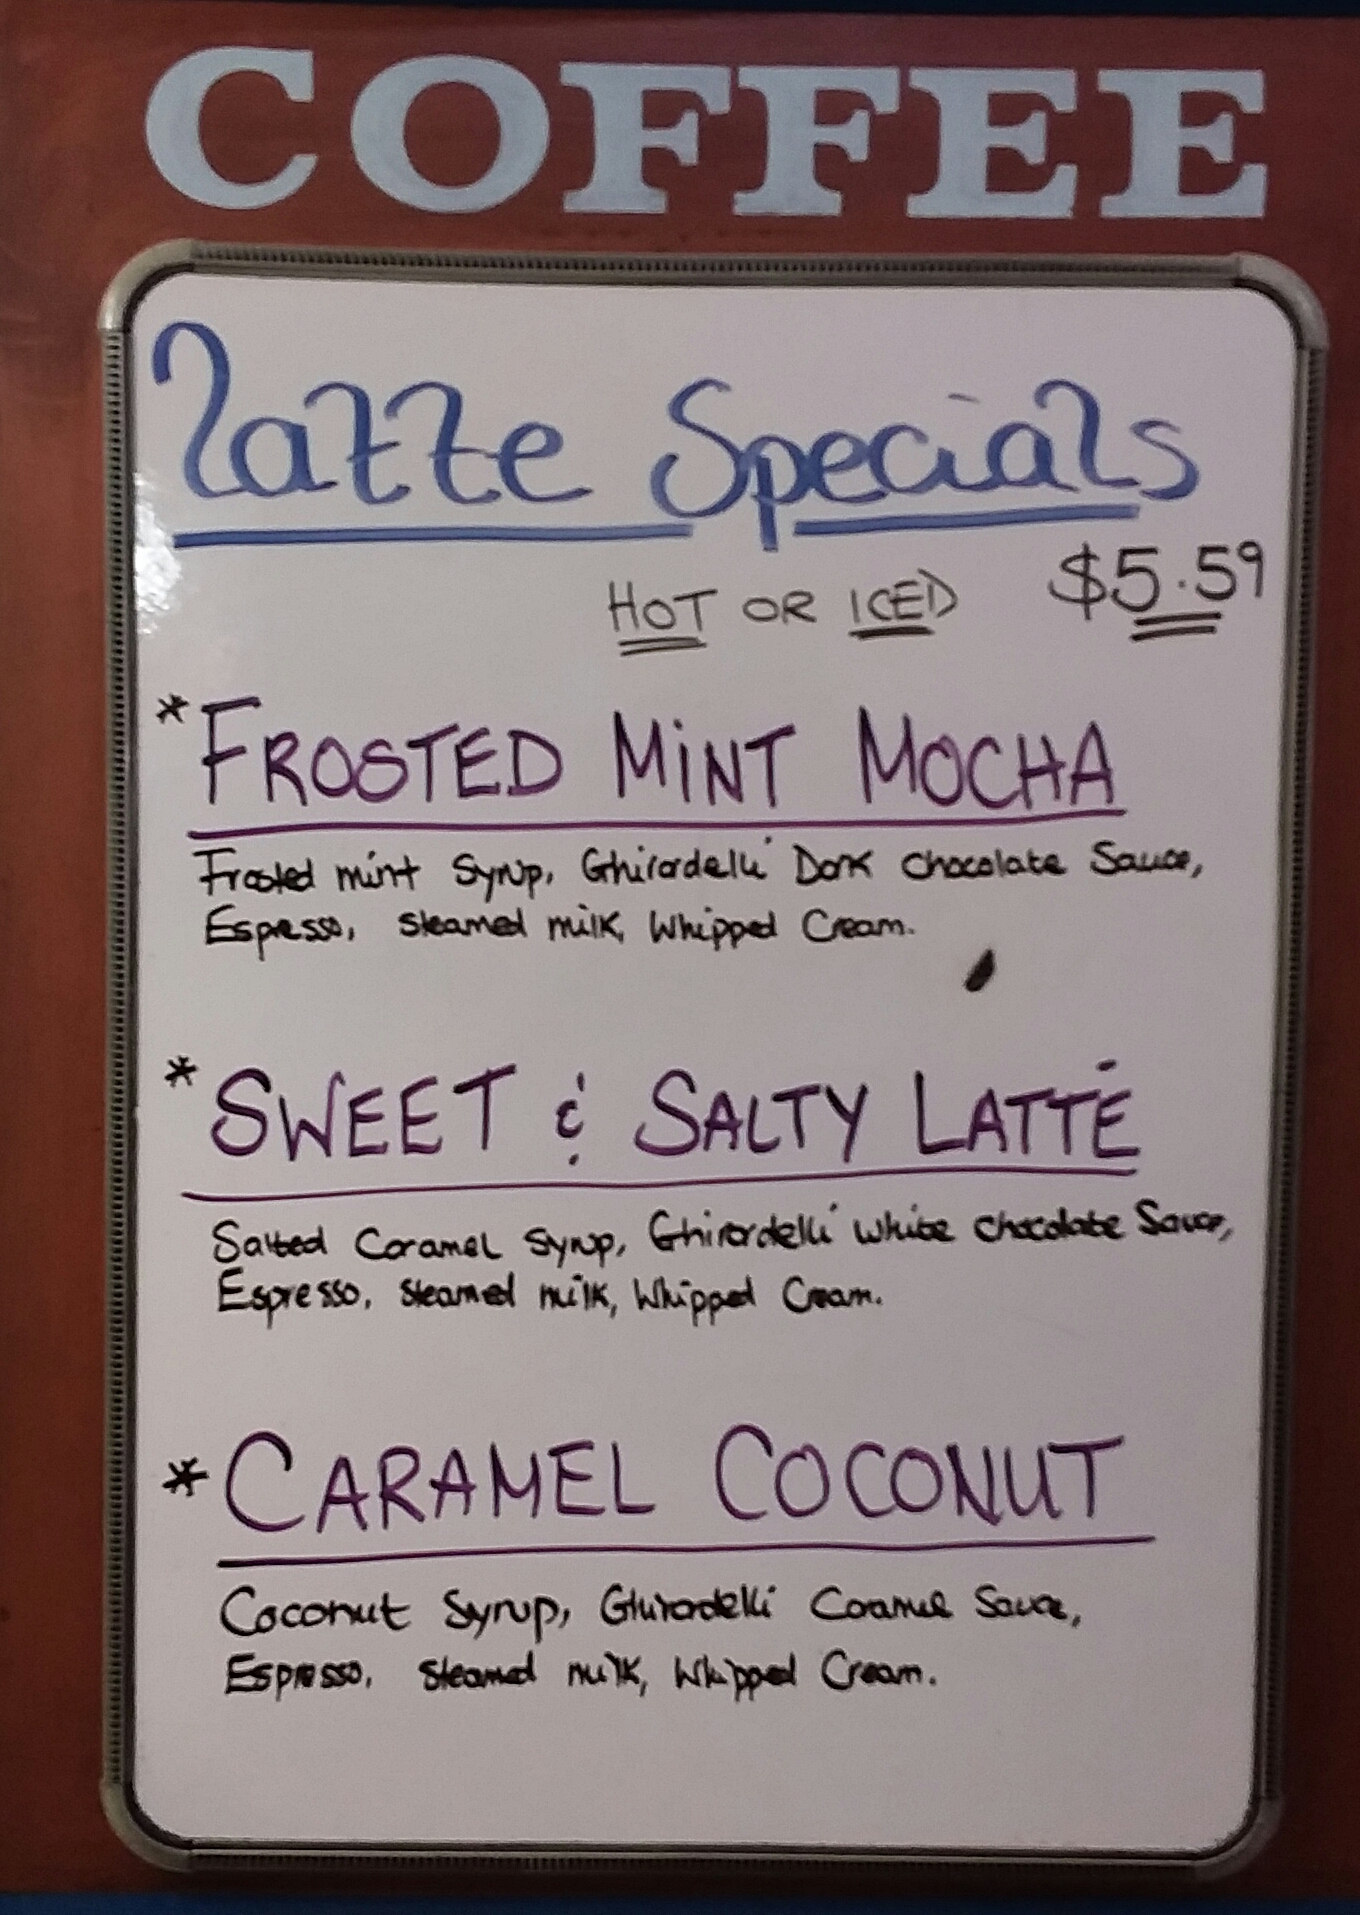 COFFEE
Latte Specials
HOT OR ICED $5.59
* FROSTED MiNT MOCHA
Frosted mint Syrup, Ghirardelli Dark Chocolate Sauce,
Espresso, steamed milk, Whipped Cream.
* SWEET & SALTY LATTÉ
Salted Caramel Syrup, Ghirardelli White Chocolate Sauce,
Espresso, steamed milk, Whipped Cream.
* CARAMEL COCONUT
Coconut Syrup, Ghirardelli Caramel Sauce,
Espresso, steamed milk, Whipped Cream.